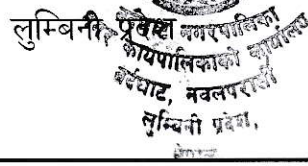 लुम्बिनी प्रदेश
नगरपालिका
कार्यपालिकाको कार्यालय
बर्दघाट, नवलपरासी
लुम्बिनी प्रदेश,
नेपाल